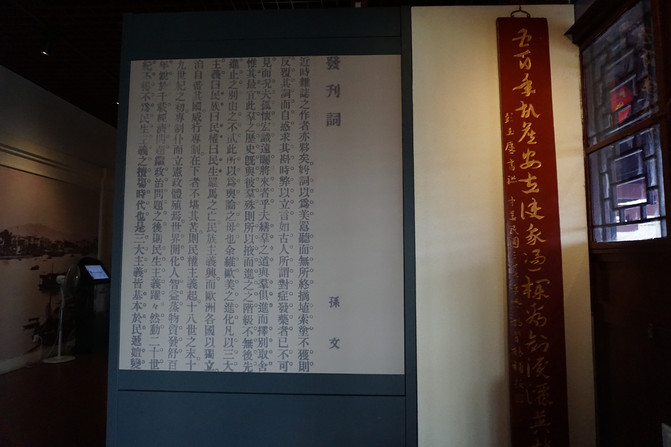 發刊詞 孫文
近時雜誌之作者亦夥矣姱詞以爲美囂聽而無所終摘埴索塗不獲則
反覆其詞而自惑求其斟時弊以立言如古人所謂對症發藥者已不可
見而況夫孤懷宏識遠矚將來者乎夫繕羣之道與羣俱進而擇別取舍
惟其最宜此羣之歷史旣與彼羣殊則所以掖而進之之階級不無後先
進止之別由之不貳此所以爲輿論之母也余維歐美之進化凡以三大
主義曰民族曰民權曰民生羅馬之亡民族主義興而歐洲各國以獨立
洎自帝其國威行專制在下者不堪其苦則民權主義起十八世之末十
九世紀之初專制仆而立憲政體殖焉世界開化人智益蒸物質發舒百
年銳於千載經濟問題繼政治問題之後則民生主義躍々然動二十世
紀不得不爲民生主義之擅塲時代也是三大主義皆基本於民遞嬗變
五百年